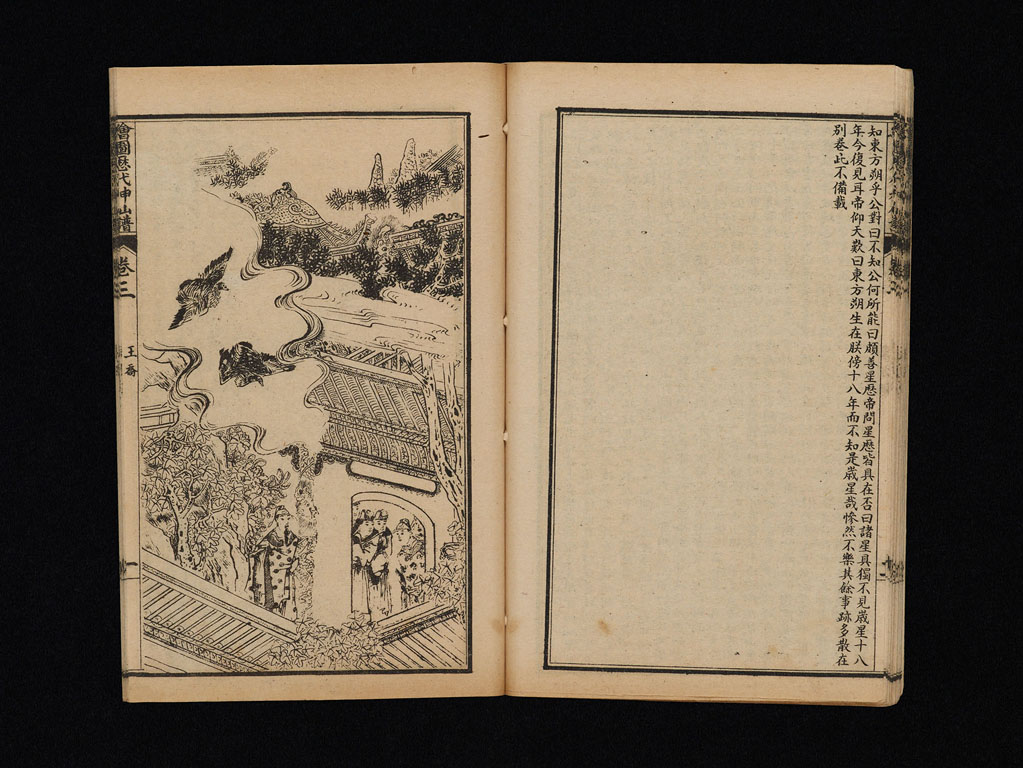 知東方朔乎公對曰不知公何所能曰頗善星厯帝問星厯皆具在否曰諸星具獨不見歲星十八
年今復見耳帝仰天歎曰東方朔生在朕傍十八年而不知是歲星哉慘然不樂其餘事跡多散在
別卷此不備載
繪圖歷代神仙譜
卷三
王喬
一